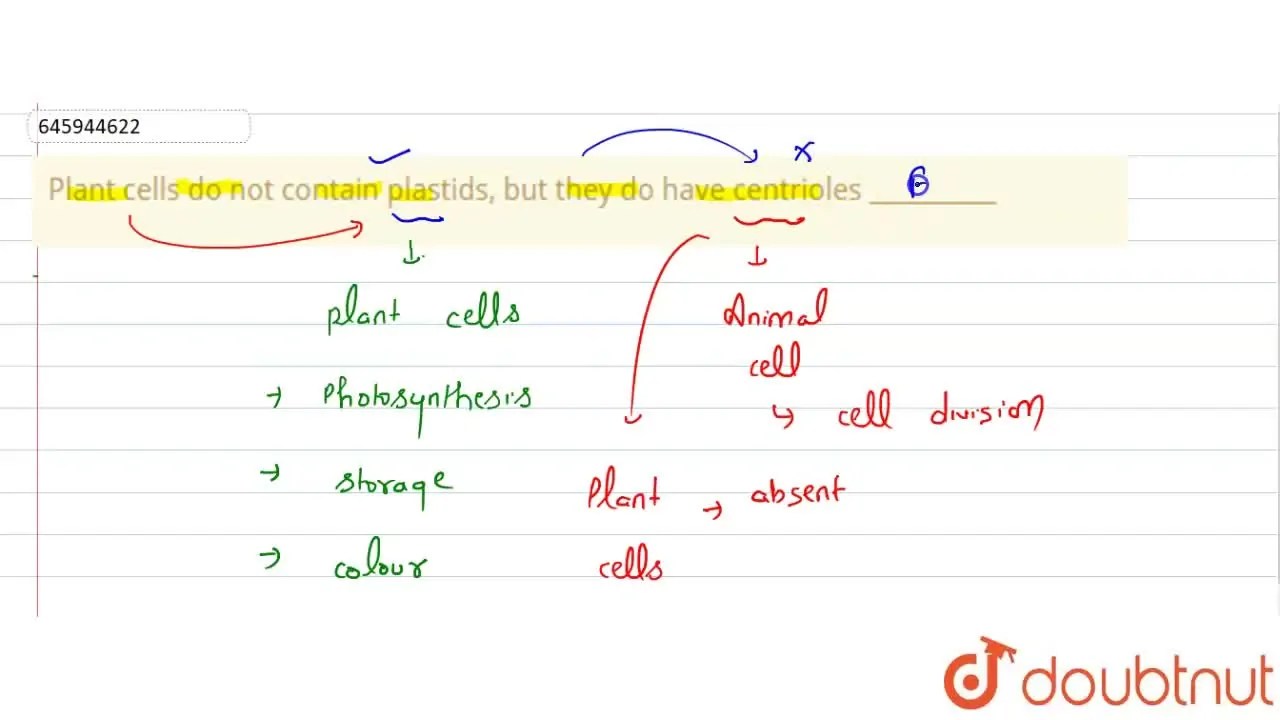 645944622
Plant cells do not contain plastids, but they do have centrioles __________
x
plant cells
Animal
cell
→ Photosynthesis
↳ cell division
→ storage
Plant → absent
cells
→ colour
doubtnut